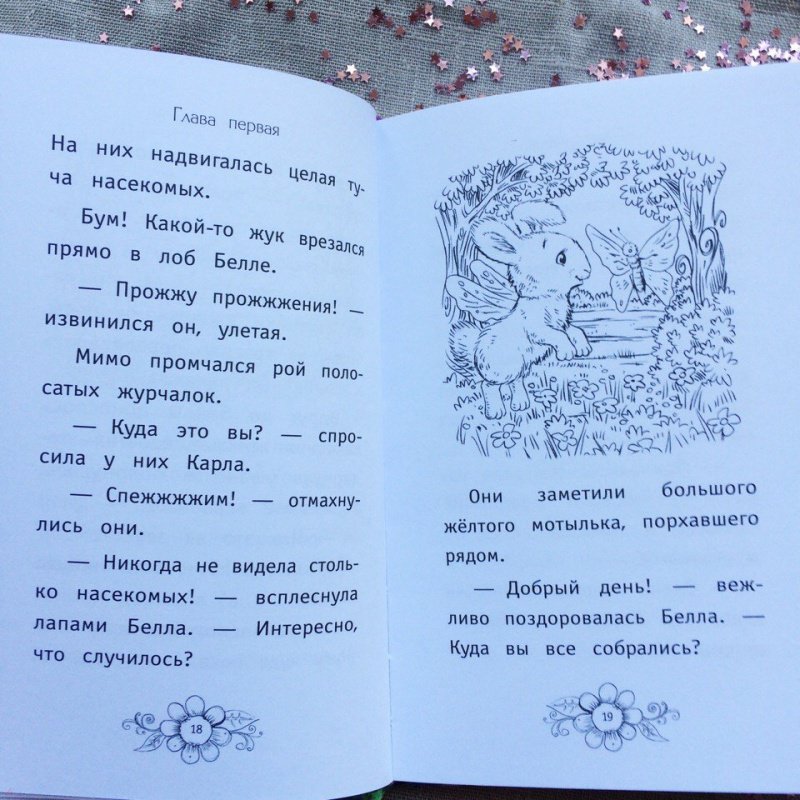 Глава первая
На них надвигалась целая ту-
ча насекомых.
Бум! Какой-то жук врезался
прямо в лоб Белле.
— Прожжу прожжжения! —
извинился он, улетая.
Мимо промчался рой поло-
сатых журчалок.
— Куда это вы? — спро-
сила у них Карла.
— Спежжжжим! — отмахну-
лись они.
— Никогда не видела столь-
ко насекомых! — всплеснула
лапами Белла. — Интересно,
что случилось?
18
Они заметили большого
жёлтого мотылька, порхавшего
рядом.
— Добрый день! — веж-
ливо поздоровалась Белла. —
Куда вы все собрались?
19